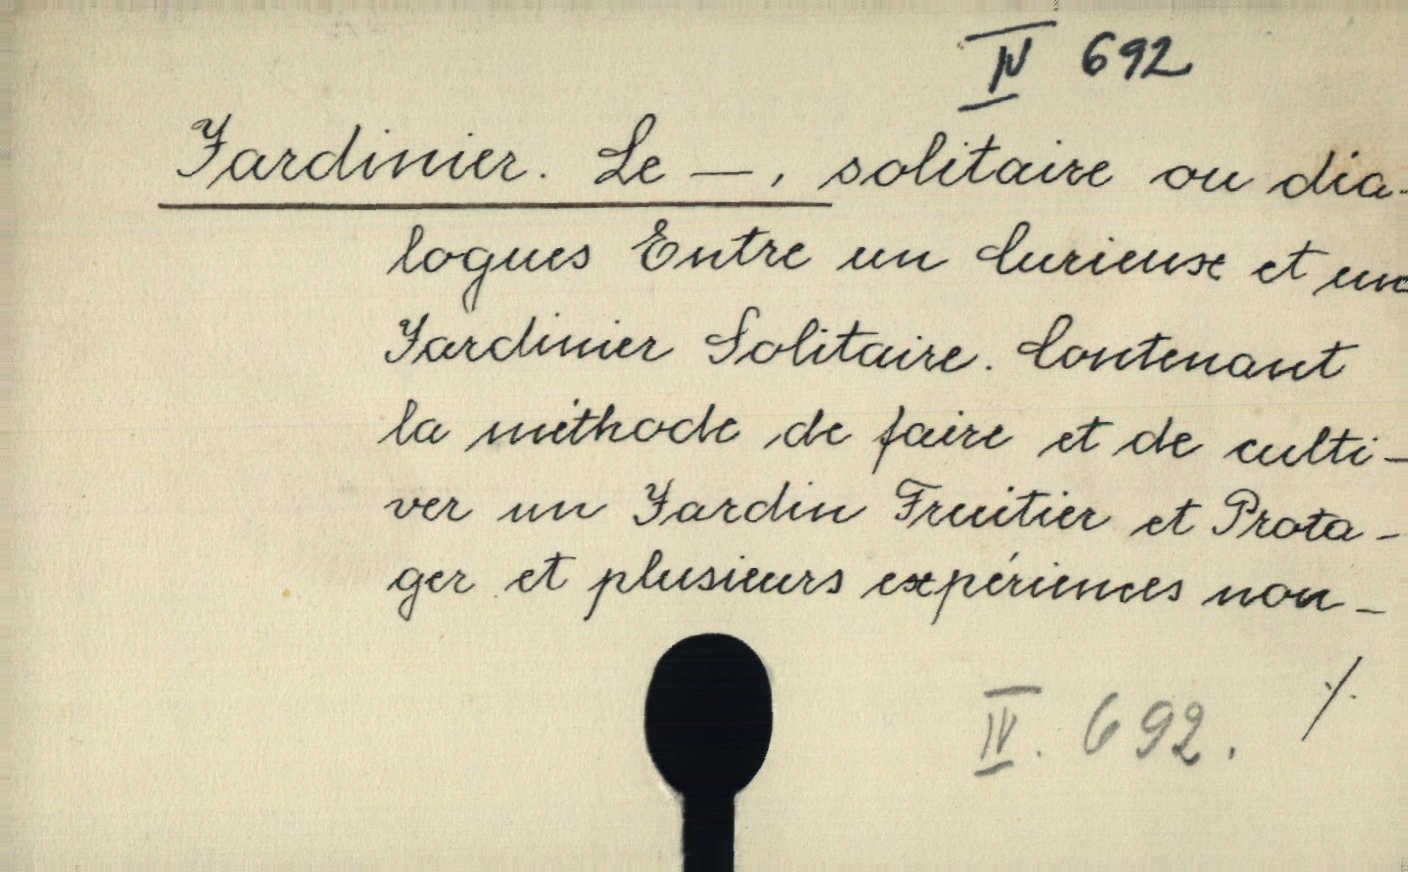 IV 692
Jardinier. Le —, solitaire ou dia-
logues Entre un Curieuse et un
Jardinier Solitaire. Contenant
la méthode de faire et de culti-
ver un Jardin Fruitier et Prota-
ger et plusieurs expériences nou-
IV. 692. ./.